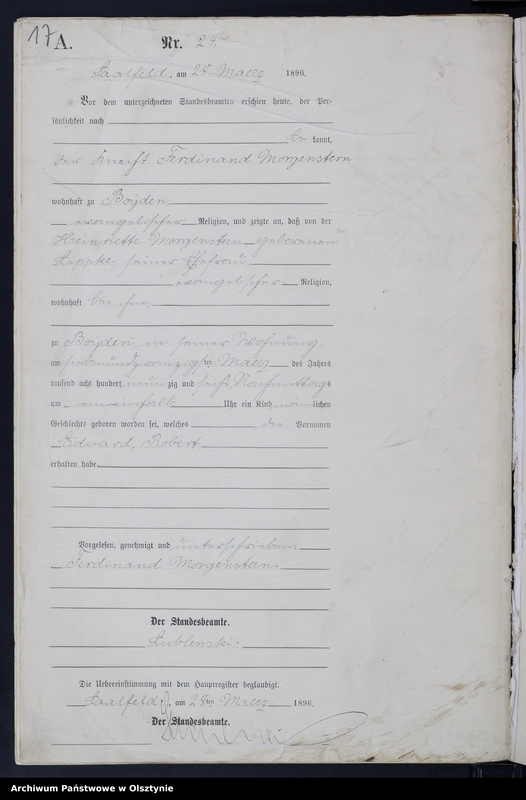 17 A. Nr. 24.
Saalfeld, am 28 Maerz 1896.
Vor dem unterzeichneten Standesbeamten erschien heute, der Per-
sönlichkeit nach
be kannt,
der Knecht Ferdinand Morgenstern
wohnhaft zu Boyden,
evangelischer Religion, und zeigte an, daß von der
Heinriette Morgenstern geborenen
seiner Ehefrau
evangelischer Religion,
wohnhaft bei ihm,
zu Boyden, in seiner Wohnung
am siebenundzwanzigsten Maerz des Jahres
tausend acht hundert neunzig und sechs Nachmittags
um ein einhalb Uhr ein Kind männlichen
Geschlechts geboren worden sei, welches die Vornamen
Eduard, Robert,
erhalten habe.
Vorgelesen, genehmigt und unterschrieben.
Ferdinand Morgenstern.
Der Standesbeamte.
Die Uebereinstimmung mit dem Hauptregister beglaubigt.
Saalfeld, am 28ten Maerz 1896.
Der Standesbeamte.
Archiwum Państwowe w Olsztynie